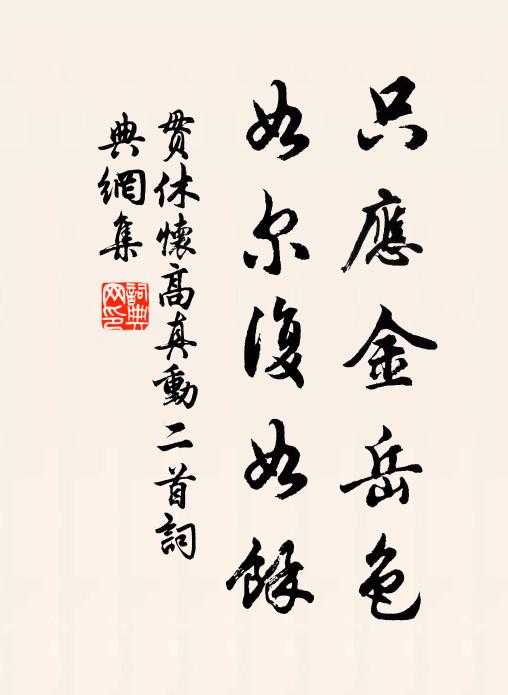 只應金岳色
如尔復如餘
貫休懷高真動二首詞
典網集
詞典
网印